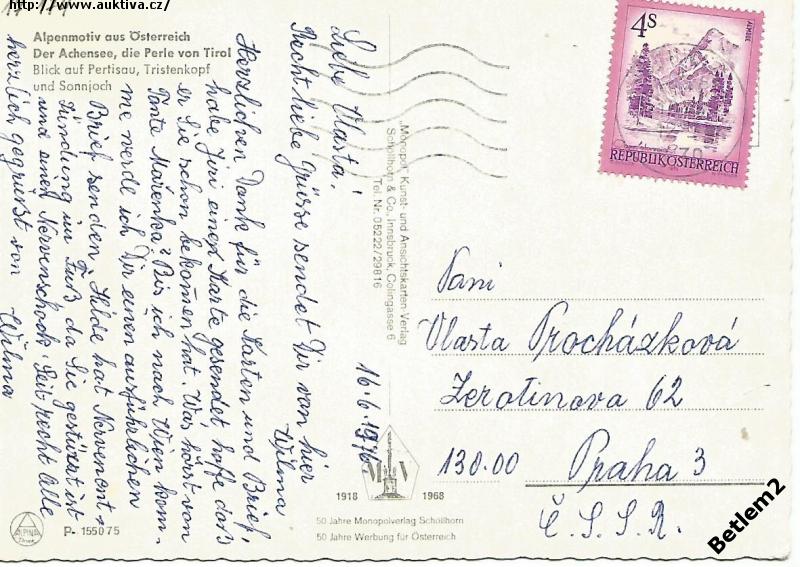 http://www.auktiva.cz/
Alpenmotiv aus Österreich
Der Achensee, die Perle von Tirol
Blick auf Pertisau, Tristenkopf
und Sonnjoch
Liebe Vlasta!
Recht liebe Grüsse sendet Dir von hier
Wilma
16.6.1976
Herzlichen Dank für die Karten und Brief,
habe Jiri einen Karte gesendet hoffe daß
er Sie schon bekommen hat. Was hörst von
Tante Marenka? Bis ich nach Wien kom-
me werde ich Dir einen ausführlichen
Brief senden. Hilde hat Nervenent-
zündung im Fuß da Sie gestürzt ist
und einen Nervenschock. Seit recht Alle
herzlich gegrüßt von
Wilma
"Monopol" Kunst- und Ansichtskarten-Verlag
Schöllhorn & Co., Innsbruck, Colingasse 6
Tel. Nr. 05222/29816
4S
ALMSEE
REPUBLIK ÖSTERREICH
Paní
Vlasta Procházková
Zerotinova 62
130.00 Praha 3
Č.S.S.R.
M V
1918 1968
50 Jahre Monopolverlag Schöllhorn
50 Jahre Werbung für Österreich
ALPINA
P- 15 50 75
Betlem2